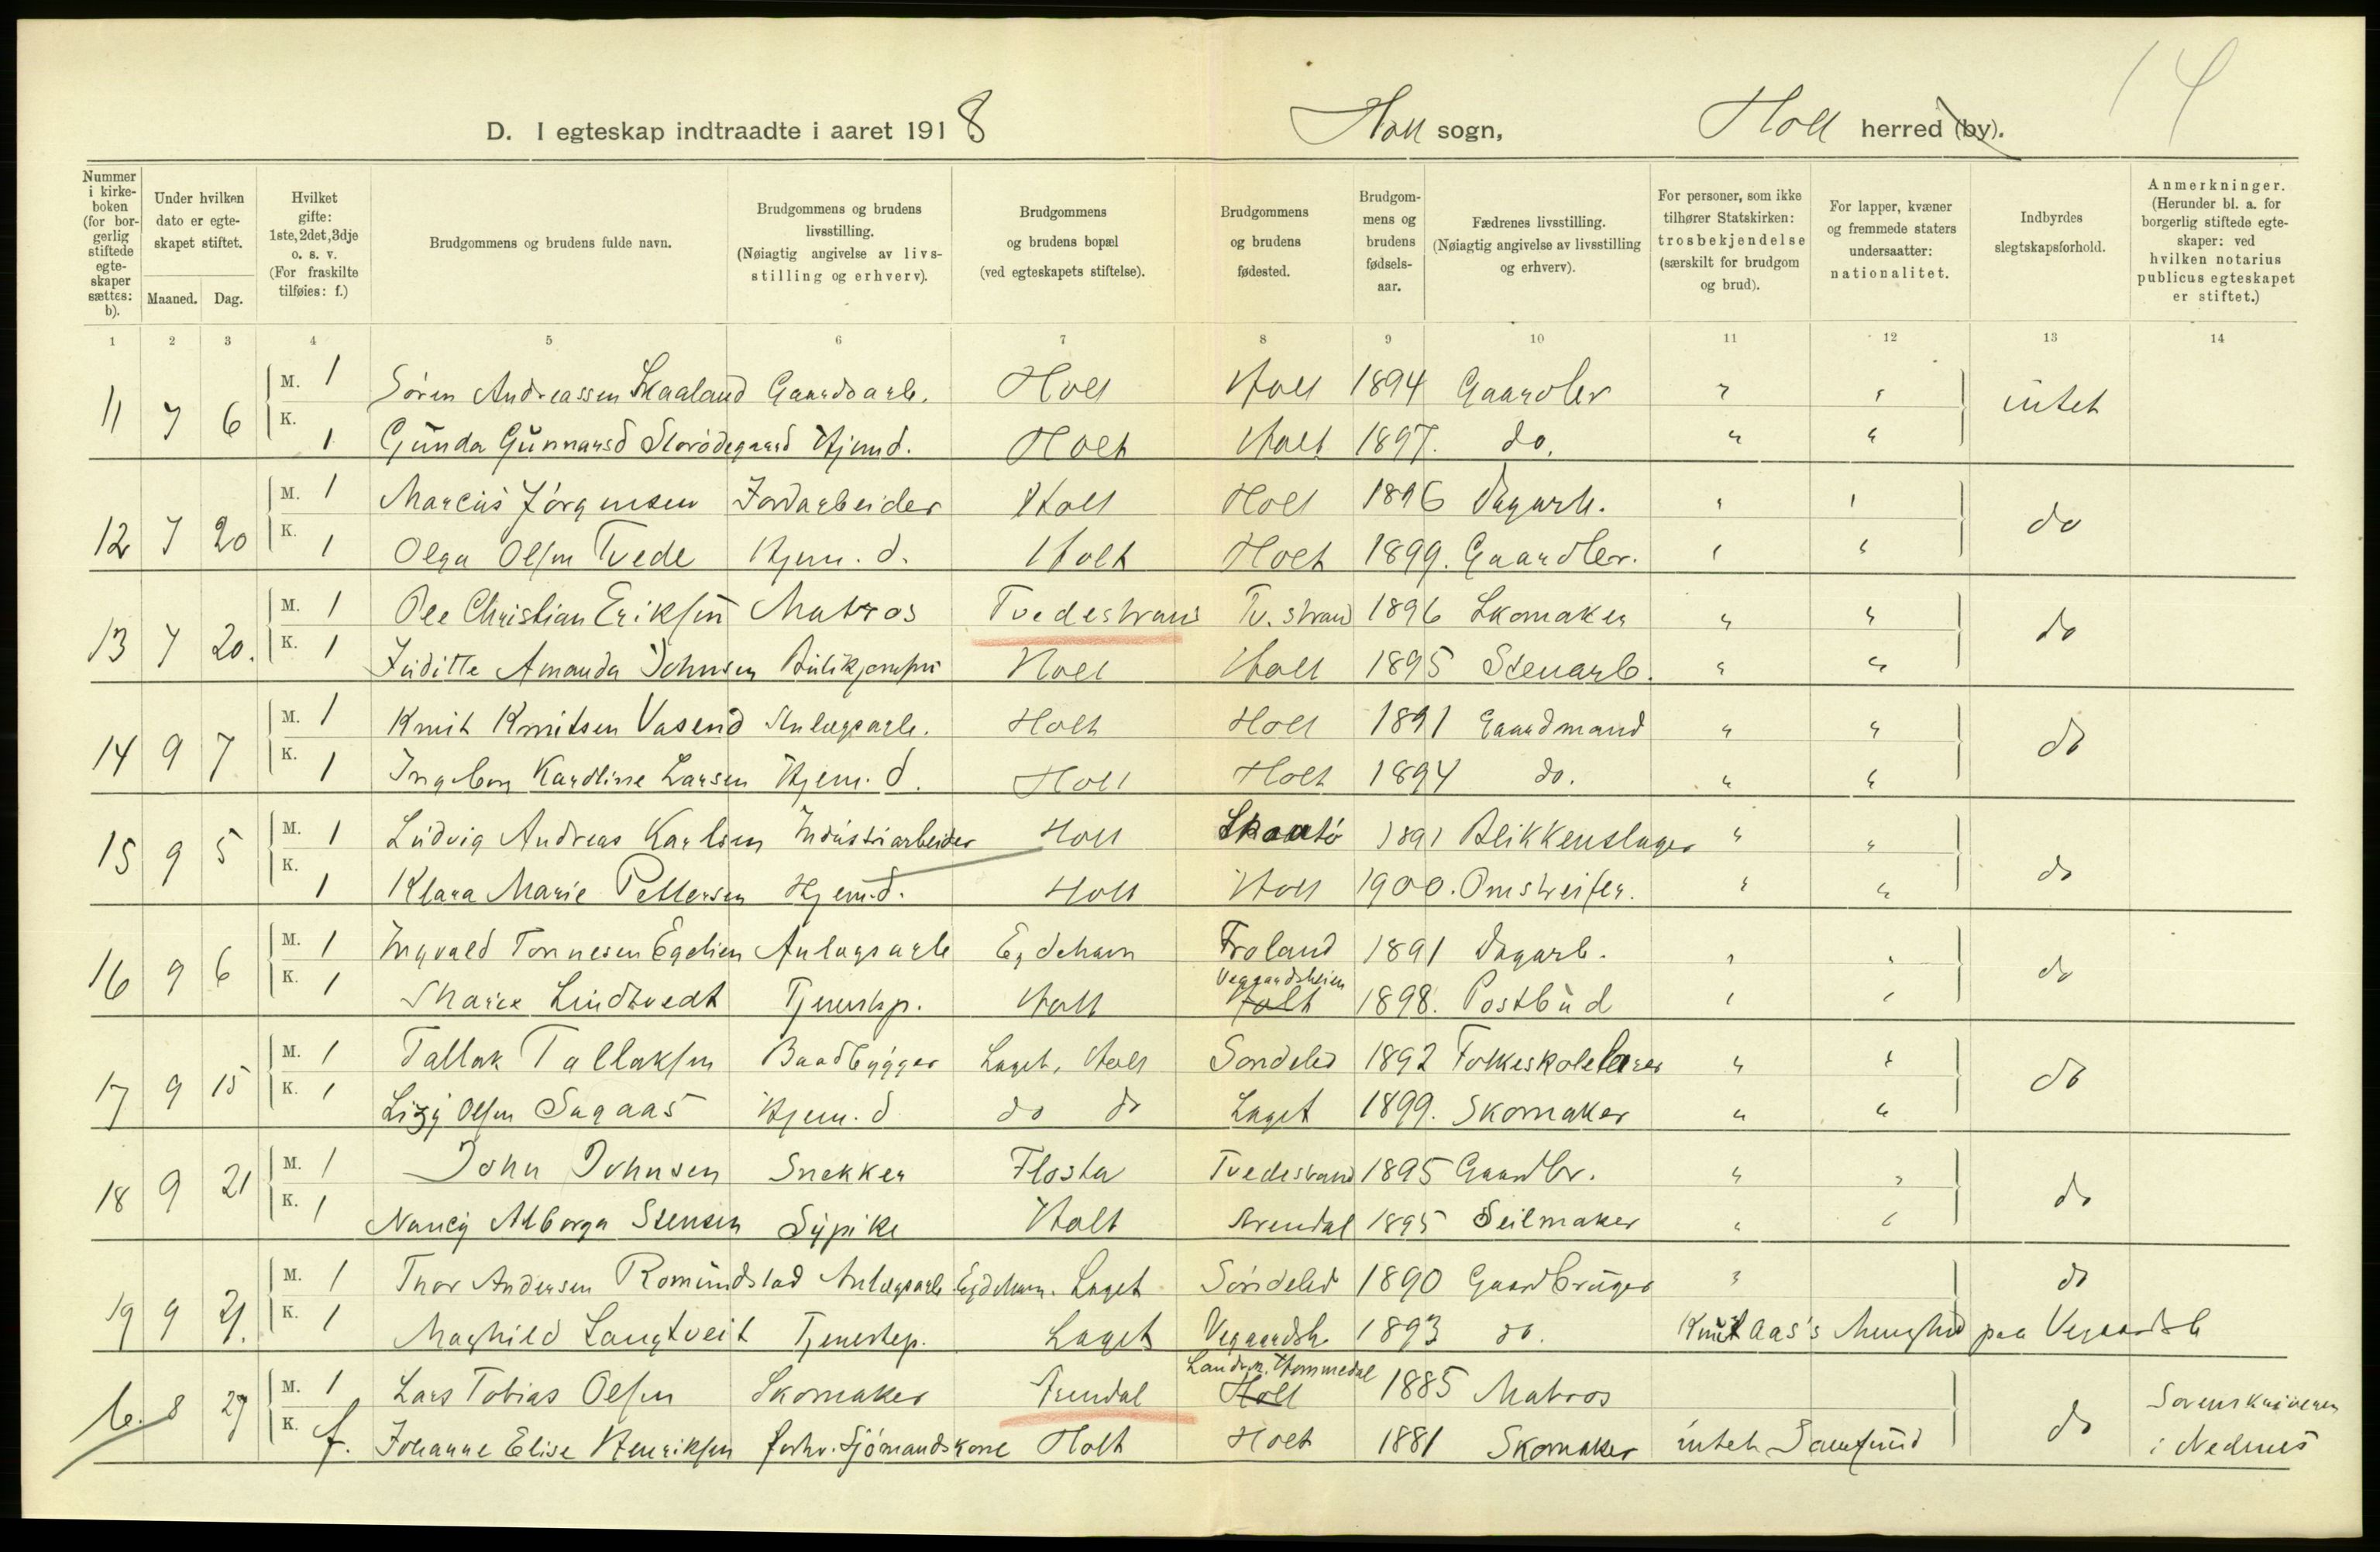 14
D. I egteskap indtraadte i aaret 1918 Holt sogn, Holt herred (by).
Nummer i kirke-boken (for bor-gerlig stiftede egte-skaper sættes: b).
Under hvilken dato er egte-skapet stiftet.
Maaned. Dag.
Hvilket gifte: 1ste, 2det, 3dje o. s. v. (For fraskilte tilføies: f.)
Brudgommens og brudens fulde navn.
Brudgommens og brudens livsstilling. (Nøiagtig angivelse av livs-stilling og erhverv).
Brudgommens og brudens bopæl (ved egteskapets stiftelse).
Brudgommens og brudens fødested.
Brudgom-mens og brudens fødsels-aar.
Fædrenes livsstilling. (Nøiagtig angivelse av livsstilling og erhverv).
For personer, som ikke tilhører Statskirken: trosbekjendelse (særskilt for brudgom og brud).
For lapper, kvæner og fremmede staters undersaatter: nationalitet.
Indbyrdes slegtskapsforhold.
Anmerkninger. (Herunder bl. a. for borgerlig stiftede egte-skaper: ved hvilken notarius publicus egteskapet er stiftet.)
1 2 3 4 5 6 7 8 9 10 11 12 13 14
11 7 6 M. 1 Søren Andreassen Skaaland Gaardsarb. Holt Holt 1894 Gaardbr " " intet
K. 1 Gunda Gunnarsd Hjemd. Holt Holt 1897. do. " "
12 7 20 M. 1 Marcus Jørgensen Jordarbeider Holt Holt 1896 Dagarb. " " do
K. 1 Olga Olsen Tvede Hjem. d. Holt Holt 1899. Gaardbr. " "
13 7 20. M. 1 Ole Christian Eriksen Matros Tvedestrand Tv. strand 1896 Skomaker " " do
K. 1 Juditte Amanda Johnsen Holt Holt 1895 Stenarb. " "
14 9 7 M. 1 Knut Knutsen Vasend Anlægsarb. Holt Holt 1891 Gaardmand " " do
K. 1 Ingeborg Karoline Larsen Hjem. d. Holt Holt 1894 do. " "
15 9 5 M. 1 Ludvig Andreas Karlsen Industriarbeider Holt Skaatø 1891 Blikkenslager " " do
K. 1 Klara Marie Pettersen Hjem.d. Holt Holt 1900. Omstreifer. " "
16 9 6 M. 1 Ingvald Tønnesen Egelien Anlægsarb Eydehavn Froland 1891 Dagarb. " " do
Vegaardsheien
K. 1 Marie Lindtvedt Tjenestep. Holt Holt 1898. Postbud " "
17 9 15 M. 1 Tallak Tallaksen Baadbygger Laget, Holt Søndeled 1892 Folkeskolelærer " " do
K. 1 Lizzy Olsen Sagaas Hjem. d do do Laget 1899. Skomaker " "
18 9 21 M. 1 John Johnsen Snekker Flosta Tvedestrand 1895 Gaardbr. " " do
K. 1 Nancy Alborga Stensen Sypike Holt Arendal 1895 Seilmaker " "
19 9 21. M. 1 Thor Andersen Romundstad Anlægsarb Eydehavn. Laget Søndeled 1890 Gaardbruger " do
K. 1 Maghild Langtveit Tjenestep. Laget Vegaardsh. 1893 do. Knut Aas's Menighed paa Vegaardsh
Landvik. Hommedal
b. 8 27 M. 1 Lars Tobias Olsen Skomaker Arendal Holt 1885 Matros do Sorenskriveren
K. f. Johanne Elise Henriksen forhv. Sjømandskone Holt Holt 1881 Skomaker intet Samfund i Nedenes